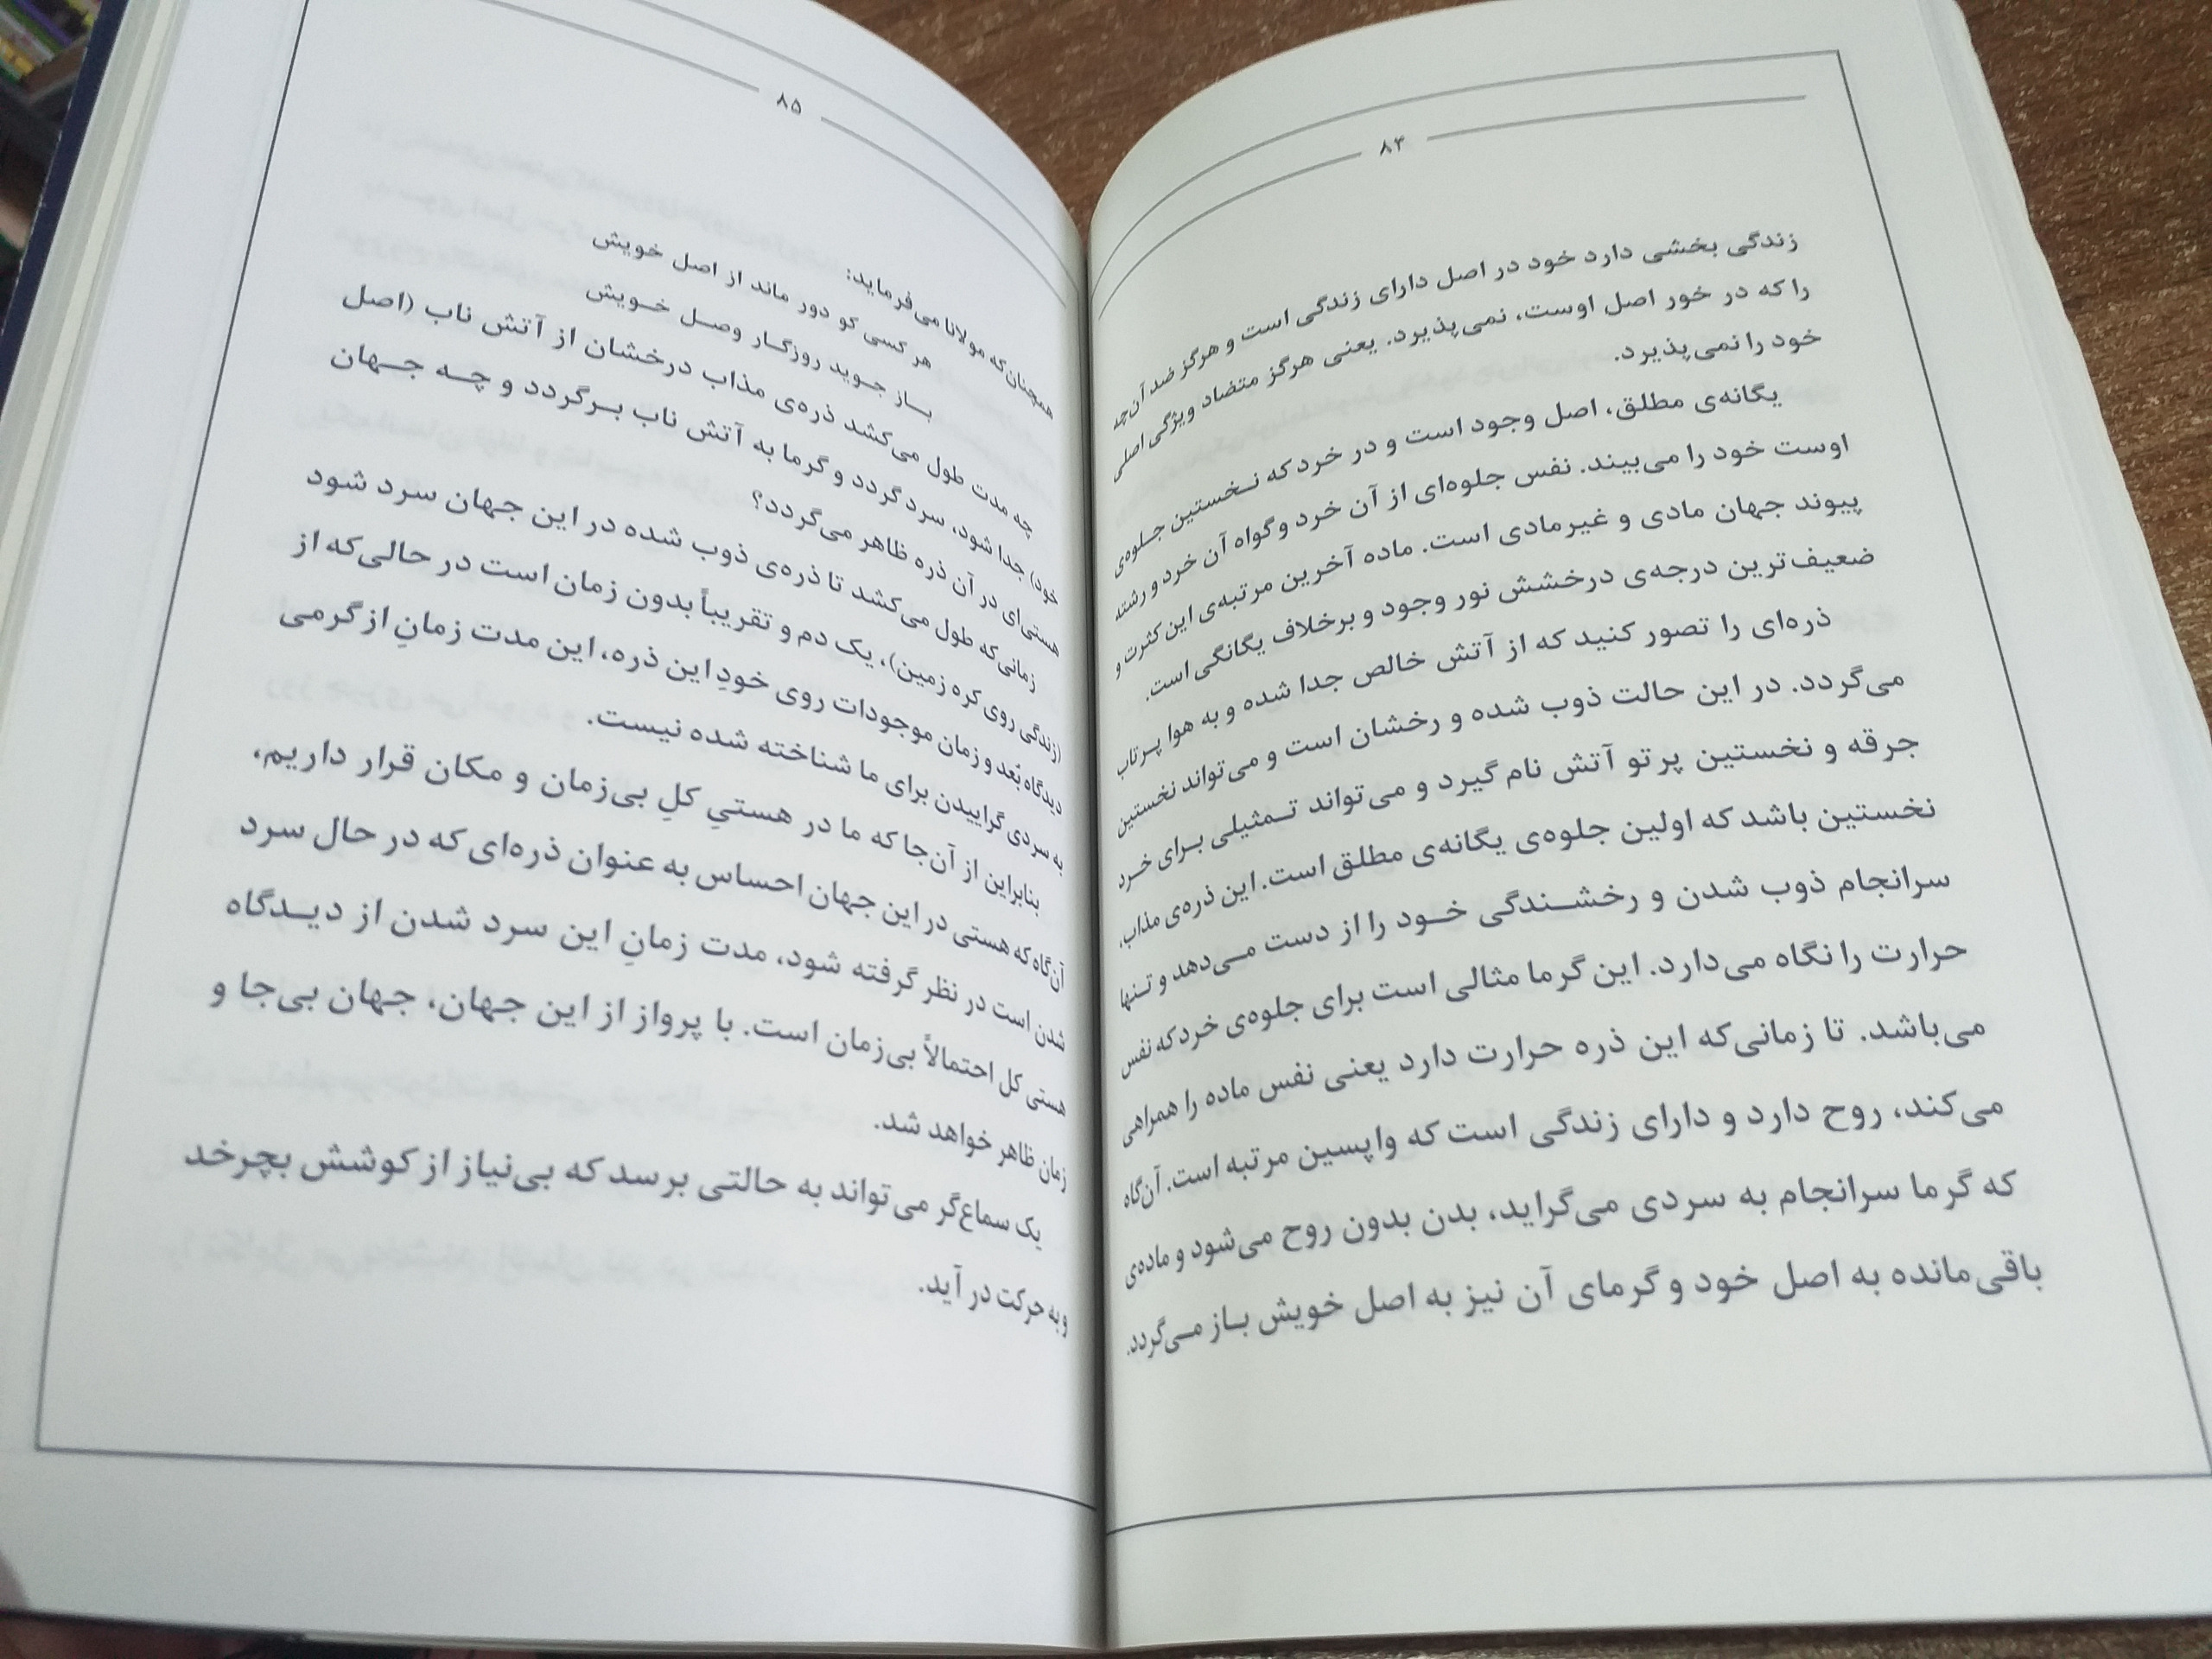 ۸۴
زندگی بخشی دارد خود در اصل دارای زندگی است و هرگز ضد آن‌چه
را که در خور اصل اوست، نمی‌پذیرد. یعنی هرگز متضاد ویژگی اصلی
خود را نمی‌پذیرد.
یگانه‌ی مطلق، اصل وجود است و در خرد که نخستین جلوه‌ی
اوست خود را می‌بیند. نفس جلوه‌ای از آن خرد و گواه آن خرد و رشته
پیوند جهان مادی و غیرمادی است. ماده آخرین مرتبه‌ی این کثرت و
ضعیف‌ترین درجه‌ی درخشش نور وجود و برخلاف یگانگی است.
ذره‌ای را تصور کنید که از آتش خالص جدا شده و به هوا پرتاب
می‌گردد. در این حالت ذوب شده و رخشان است و می‌تواند نخستین
جرقه و نخستین پرتو آتش نام گیرد و می‌تواند تمثیلی برای خرد
نخستین باشد که اولین جلوه‌ی یگانه‌ی مطلق است. این ذره‌ی مذاب،
سرانجام ذوب شدن و رخشندگی خود را از دست می‌دهد و تنها
حرارت را نگاه می‌دارد. این گرما مثالی است برای جلوه‌ی خرد که نفس
می‌باشد. تا زمانی‌که این ذره حرارت دارد یعنی نفس ماده را همراهی
می‌کند، روح دارد و دارای زندگی است که واپسین مرتبه است. آن‌گاه
که گرما سرانجام به سردی می‌گراید، بدن بدون روح می‌شود و ماده‌ی
باقی‌مانده به اصل خود و گرمای آن نیز به اصل خویش باز می‌گردد.
۸۵
همچنان‌که مولانا می‌فرماید:
هر کسی کو دور ماند از اصل خویش
باز جوید روزگار وصل خویش
چه مدت طول می‌کشد ذره‌ی مذاب درخشان از آتش ناب (اصل
خود) جدا شود، سرد گردد و گرما به آتش ناب برگردد و چه جهان
هستی‌ای در آن ذره ظاهر می‌گردد؟
زمانی‌که طول می‌کشد تا ذره‌ی ذوب شده در این جهان سرد شود
(زندگی روی کره زمین)، یک دم و تقریباً بدون زمان است در حالی‌که از
دیدگاه بُعد و زمان موجودات روی خودِ این ذره، این مدت زمانِ از گرمی
به سردی گراییدن برای ما شناخته شده نیست.
بنابراین از آن‌جا که ما در هستیِ کلِ بی‌زمان و مکان قرار داریم،
آن‌گاه که هستی در این جهان احساس به عنوان ذره‌ای که در حال سرد
شدن است در نظر گرفته شود، مدت زمانِ این سرد شدن از دیدگاه
هستی کل احتمالاً بی‌زمان است. با پرواز از این جهان، جهان بی‌جا و
زمان ظاهر خواهد شد.
یک سماع‌گر می‌تواند به حالتی برسد که بی‌نیاز از کوشش بچرخد
و به حرکت در آید.